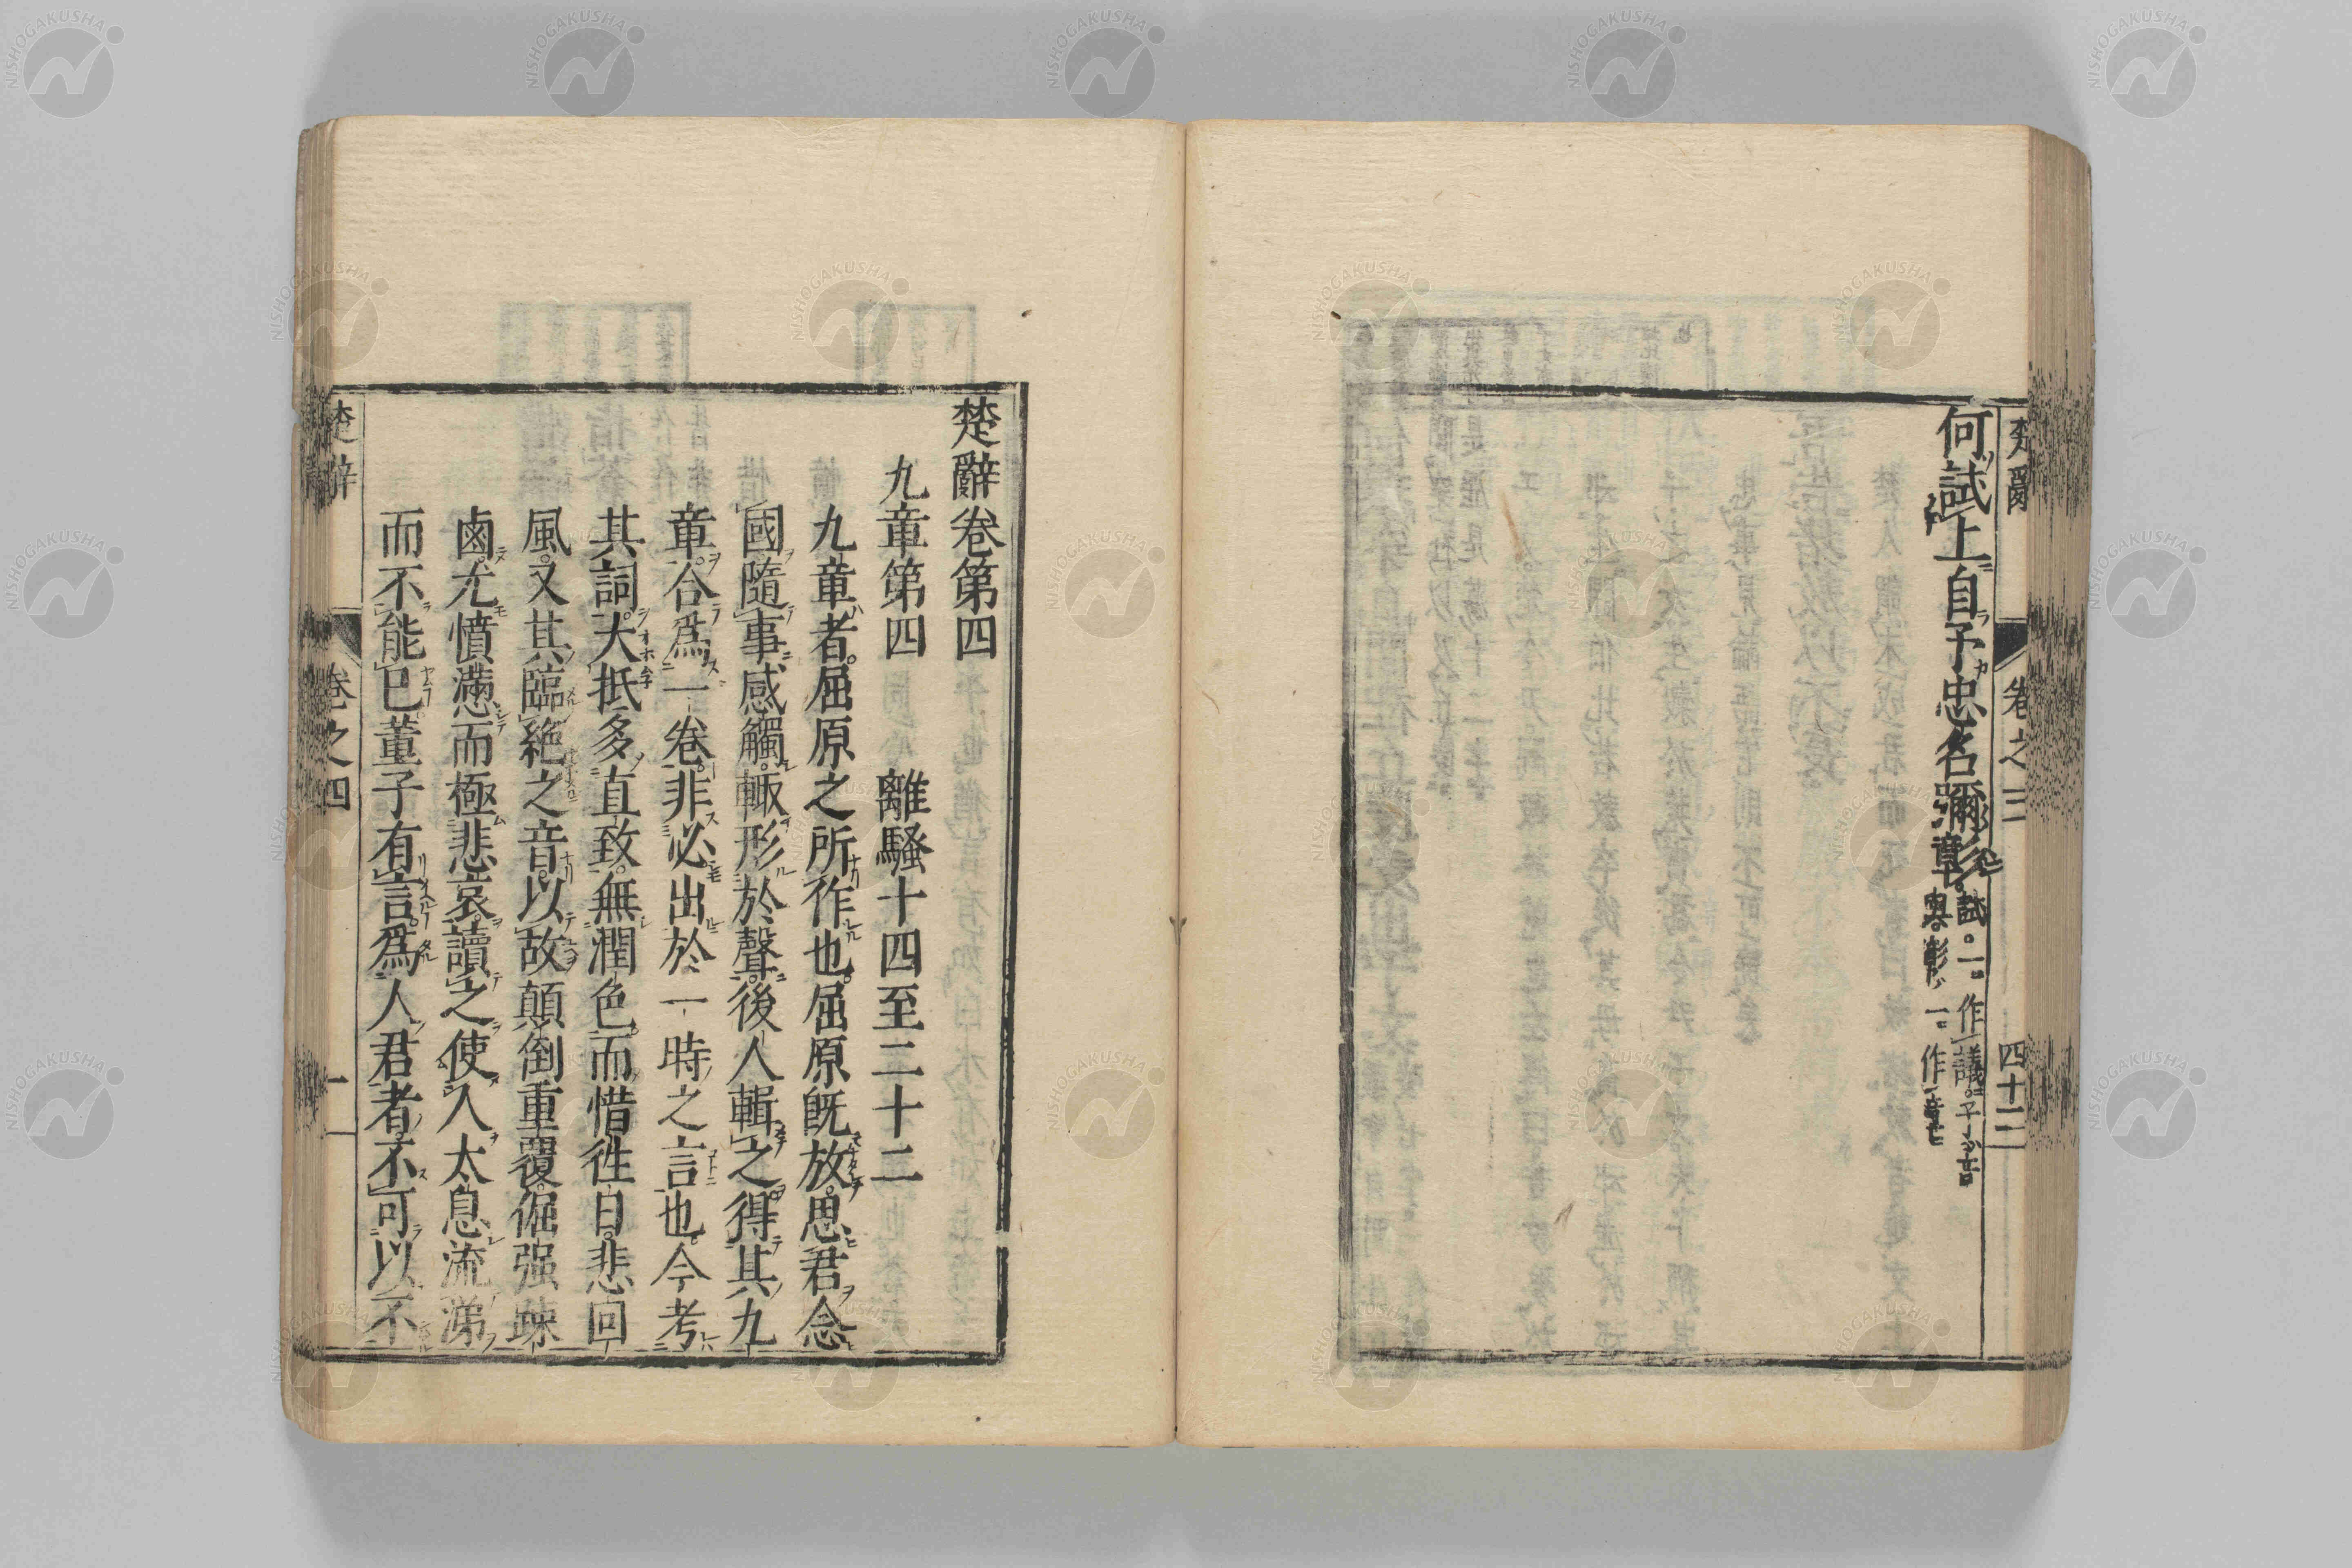 楚辭
卷之三
四十二
何試上自予忠名彌彰
章
試一作議予音
與彰一作章
楚辭卷第四
九章第四 離騷十四至二十二
九章者屈原之所作也屈原旣放思君念
國隨事感觸輒形於聲後人輯之得其九
章合爲一卷非必出於一時之言也今考
其詞大抵多直致無潤色而惜徃日悲回
風又其臨絶之音以故顛倒重覆倔强踈
鹵尤憤懣而極悲哀讀之使人太息流涕
而不能已董子有言爲人君者不可以不
楚辭
卷之四
一
NISHOGAKUSHA